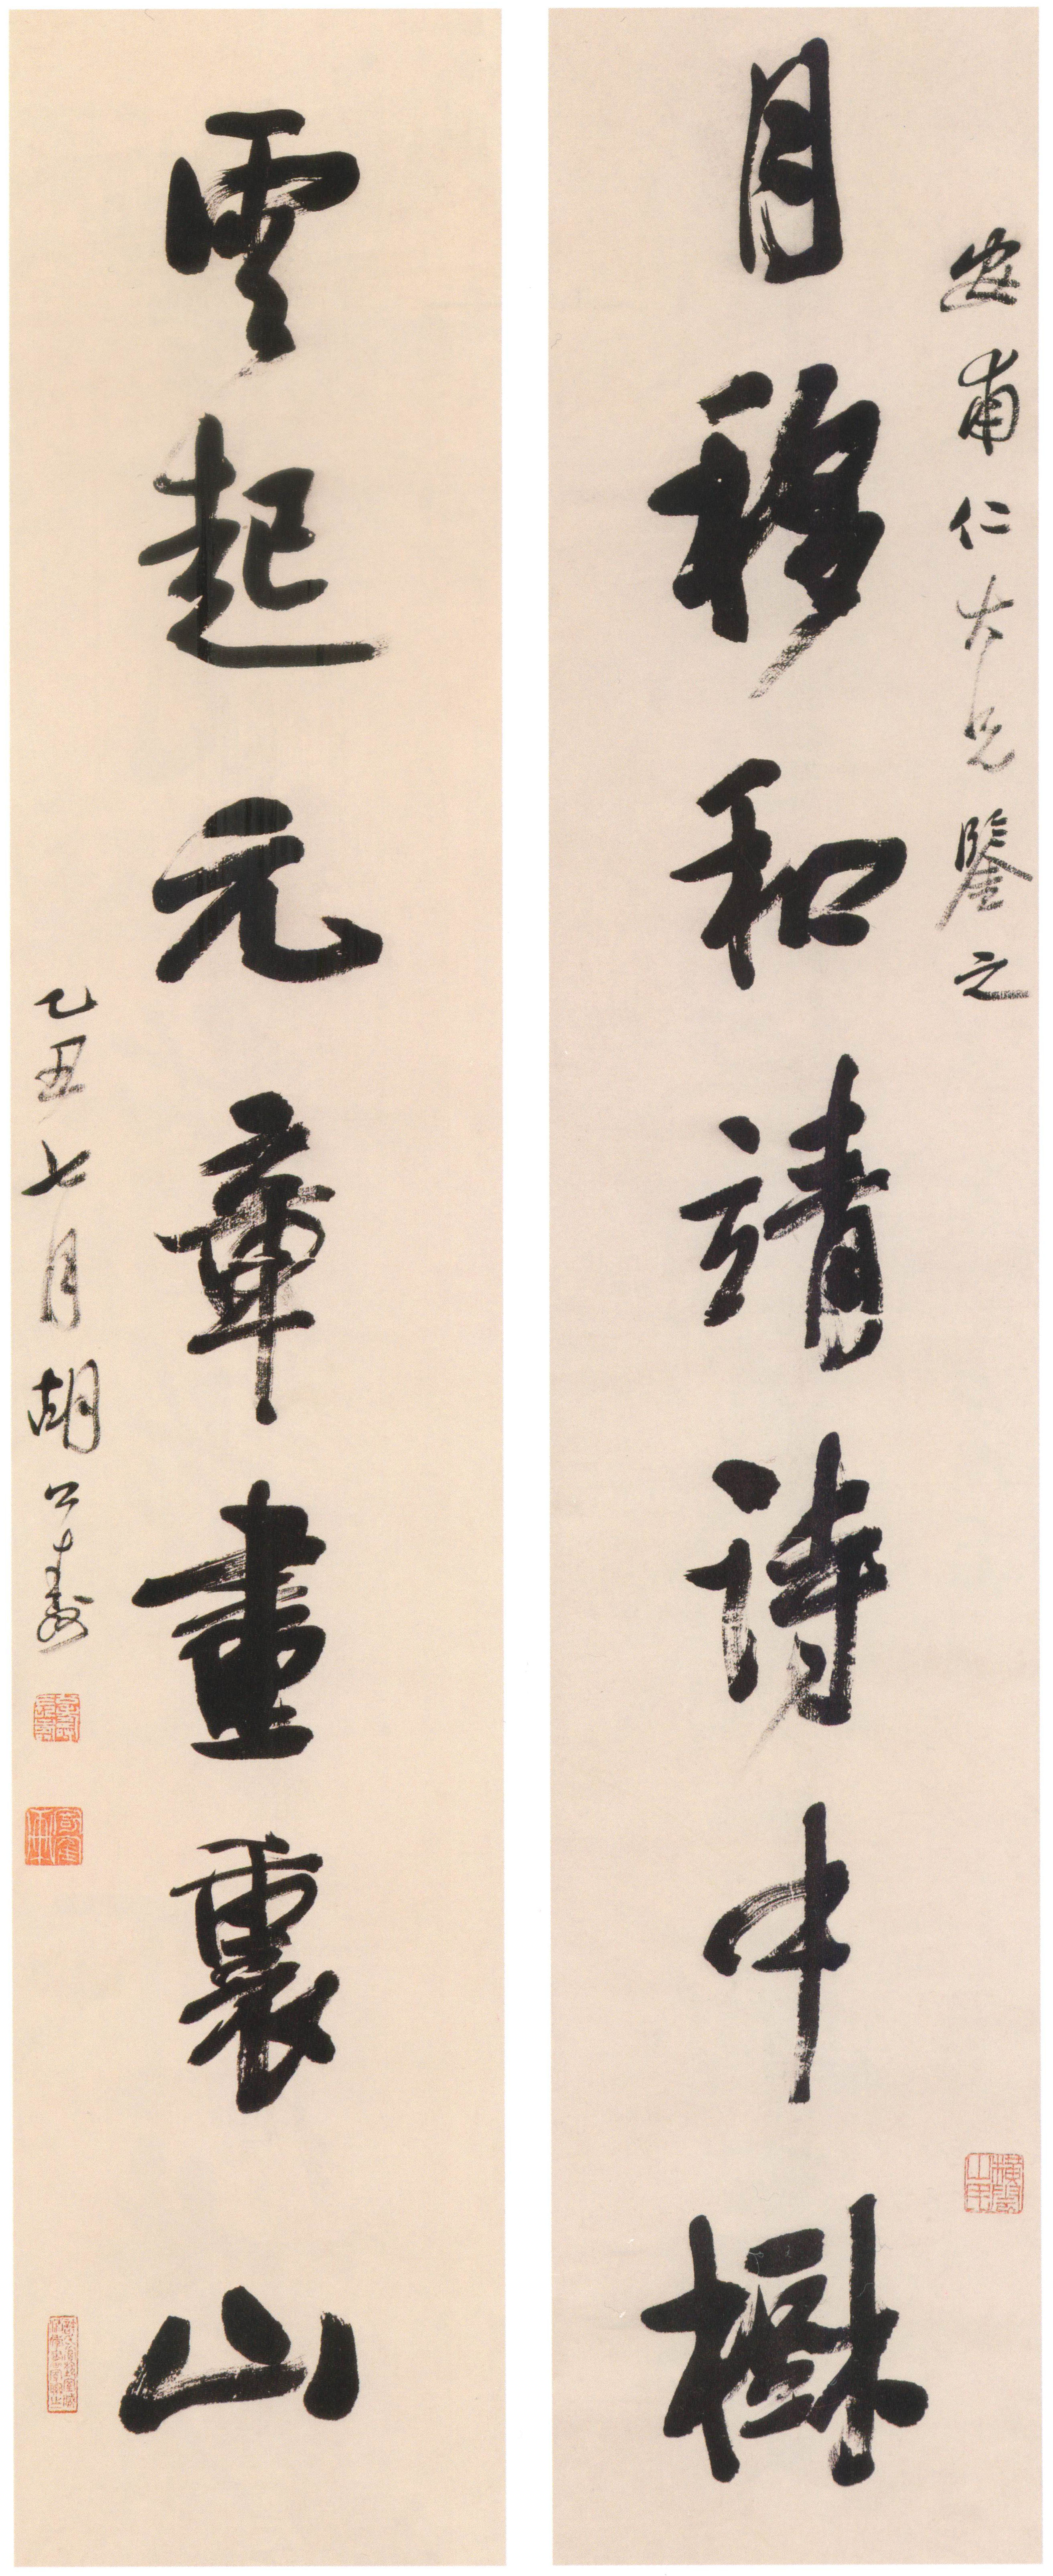 安甫仁大兄鑒之
月移和靖詩中樹
雲起元章畫裏山
乙丑七月胡公壽